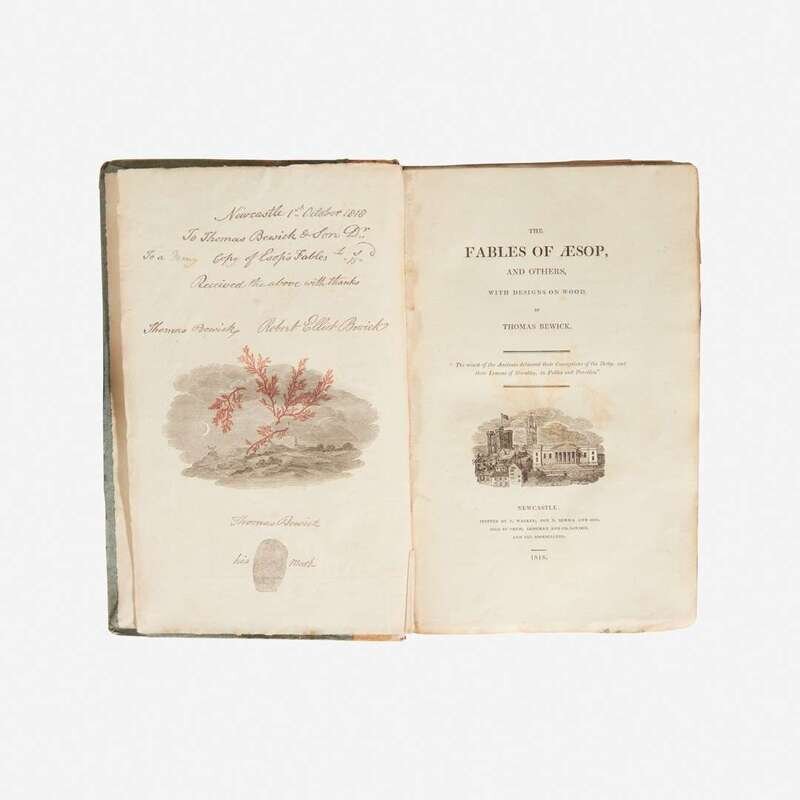 Newcastle 1st October 1818
To Thomas Bewick & Son Dr.
To a Copy of Esop's Fables
Received the above with thanks
Thomas Bewick Robert Elliot Bewick
Thomas Bewick
his mark
THE
FABLES OF ÆSOP,
AND OTHERS,
WITH DESIGNS ON WOOD,
BY
THOMAS BEWICK.
"The wisest of the Ancients delivered their Conceptions of the Deity, and
their Lessons of Morality, in Fables and Parables."
NEWCASTLE:
PRINTED BY E. WALKER, FOR T. BEWICK AND SON.
SOLD BY THEM, LONGMAN AND CO. LONDON,
AND ALL BOOKSELLERS.
1818.